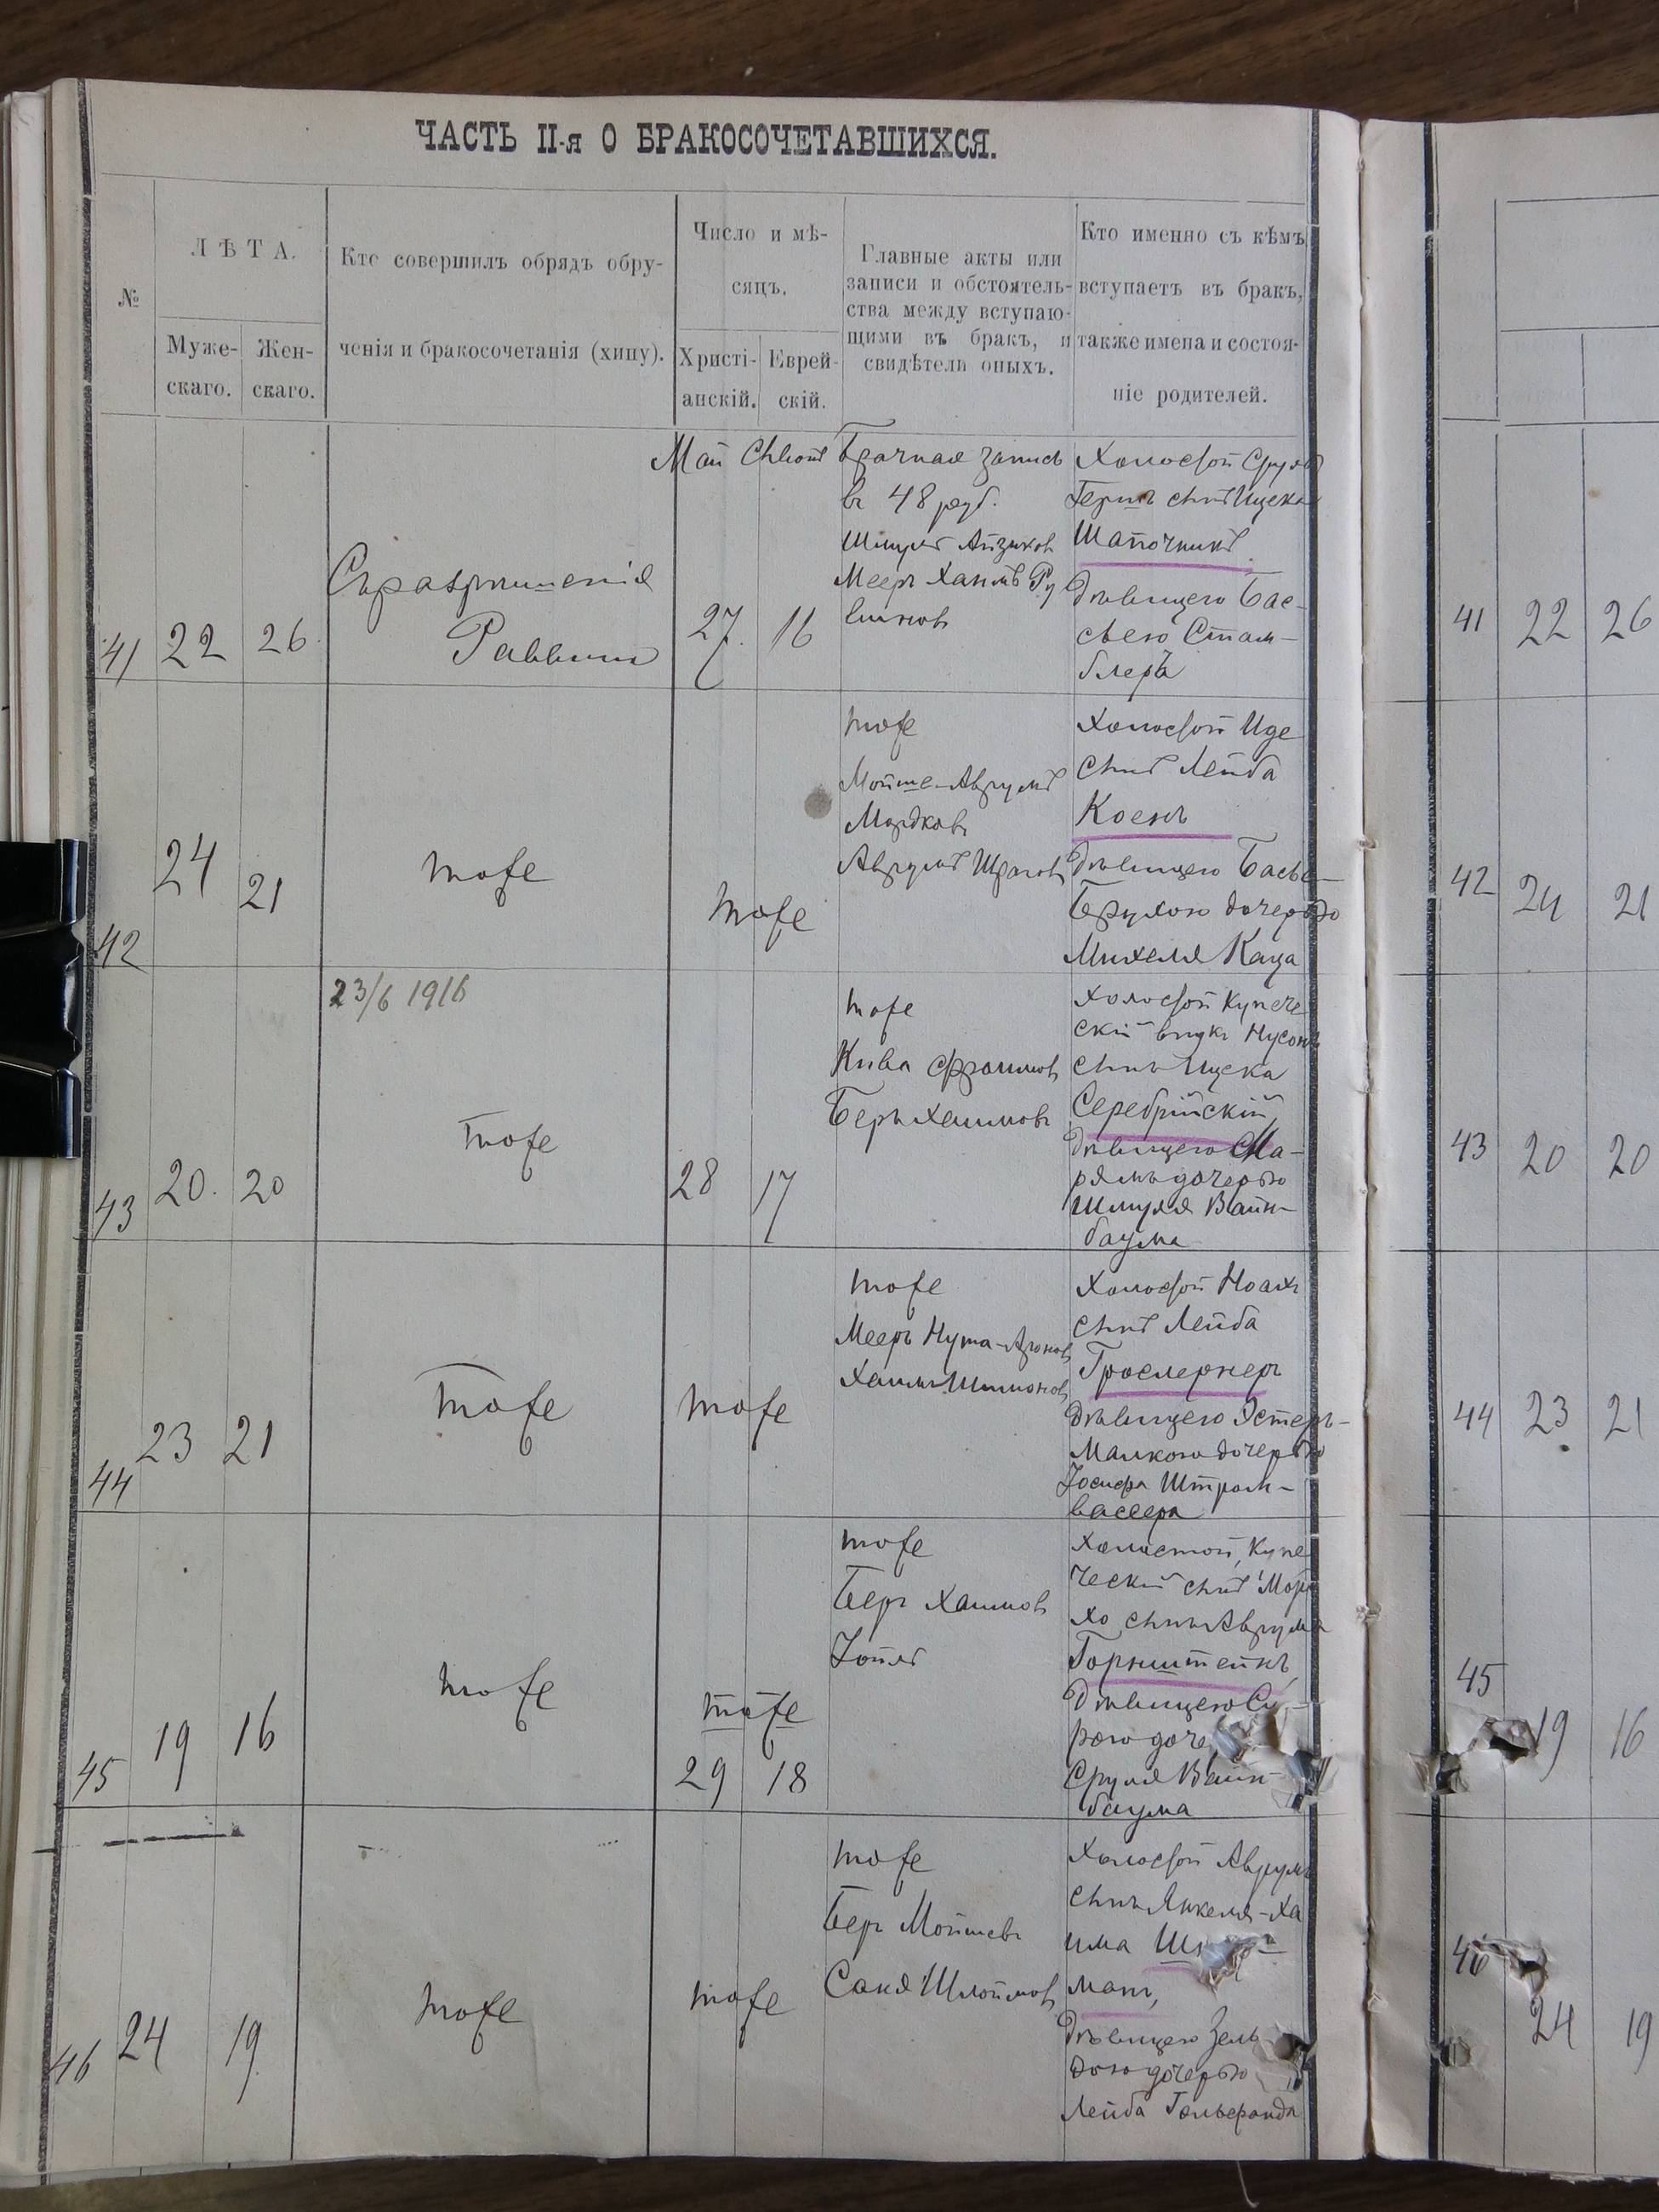 ЧАСТЬ II-я О БРАКОСОЧЕТАВШИХСЯ.
№
ЛѢТА.
Муже-
скаго.
Жен-
скаго.
Кто совершилъ обрядъ обру-
ченія и бракосочетанія (хипу).
Число и мѣ-
сяцъ.
Христі-
анскій.
Еврей-
скій.
Главные акты или
записи и обстоятель-
ства между вступаю-
щими въ бракъ, и
свидѣтели оныхъ.
Кто именно съ кѣмъ
вступаетъ въ бракъ,
также имена и состоя-
ніе родителей.
41
22
26
Съ разрѣшенія
Раввина
Май
27
16
Брачная запись
въ 48 руб.
Шмулъ Айзиковъ
Мееръ Хаимъ Ру
виновъ
Холостой Сруль
Гершъ сынъ Ицека
Шапочникъ
дѣвицею Бас-
сьею Стам-
блеръ
42
24
21
тоже
тоже
тоже
Мойше-Аврумъ
Мордковъ
Аврумъ Шраговъ
Холостой Иде
сынъ Лейба
Коенъ
дѣвицею Басье-
Брухою дочерью
Михеля Каца
43
20
20
23/6 1916
тоже
28
17
тоже
Кива Фроимовъ
Беръ Хаимовъ
Холостой Купече
скій внукъ Нусонъ
сынъ Ицека
Серебрійскій
дѣвицею Ма-
рямъ дочерью
Шмуля Вайн-
баума
44
23
21
тоже
тоже
тоже
Мееръ Нута-Ароновъ
Хаимъ Шимоновъ
Холостой Ноахъ
сынъ Лейба
Грослернеръ
дѣвицею Эстеръ-
Малкою дочерью
Іосифа Штром-
вассера
45
19
16
тоже
тоже
29
18
тоже
Беръ Хаимовъ
Холостой, Купе
ческій сынъМорд
хо сынъ Аврума
Горнштейнъ
дѣвицею Су-
рою доче
Сруля Вайн-
баума
46
24
19
тоже
тоже
тоже
Беръ Мойшевъ
Саня Шлоймовъ
Холостой Аврумъ
сынъ Янкеля-Ха
има
манъ,
дѣвицею Зель
дою дочерью
Лейба Гельфанда
41
22
26
42
24
21
43
20
20
44
23
21
45
19
16
46
24
19